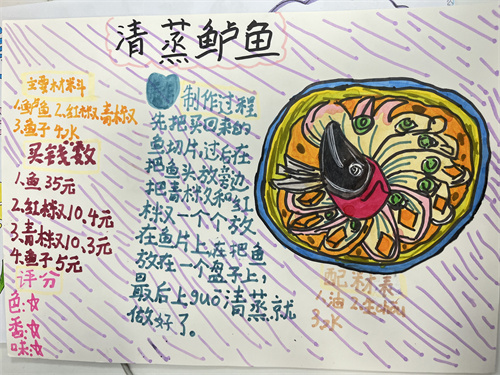 清蒸鲈鱼
主要材料
1.鲈鱼 2.红椒 青椒
3.鱼子 4.水
买钱数
1.鱼 35元
2.红椒10.4元
3.青椒10.3元
4.鱼子5元
评分
色:
香:
味:
制作过程
先把买回来的
鱼切片,过后在
把鱼头放旁边
把青椒和红
椒一个个放
在鱼片上,在把鱼
放在一个盘子上,
最后上guo清蒸就
做好了。
配料表
1.油 2.生chōu
3.水